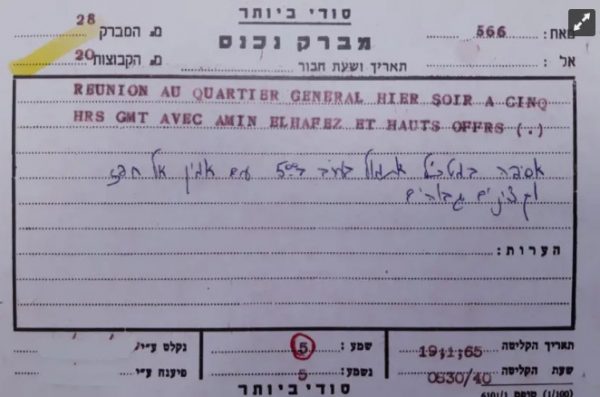 סודי ביותר
מס. המברק 28
מברק נכנס
מאת: 566
מס. הקבוצות 20
תאריך ושעת חבור
אל:
REUNION AU QUARTIER GENERAL HIER SOIR A CINQ
HRS GMT AVEC AMIN ELHAFEZ ET HAUTS OFFRS (.)
אסיפה במטכ"ל אתמול בערב ב 500 עם אמין אל חפז
וקצינים גבוהים
הערות:
תאריך הקליטה 19;1;65
שמע: 5
נקלט ע"י
שעת הקליטה 0830/40
נשמע: 5
פיענח ע"י
סודי ביותר
(1/100) טופס 6101/1